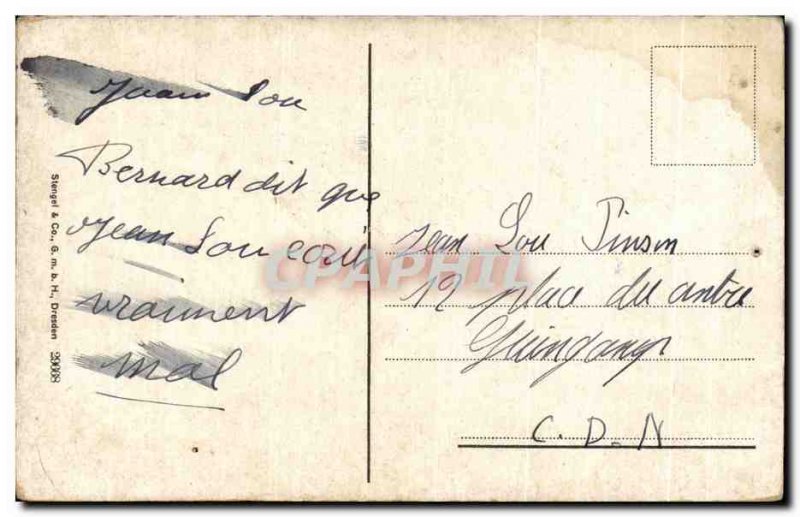 Jean Lou
Bernard dit que
Jean Lou écrit
vraiment
mal
Stengel & Co., G. m. b. H., Dresden 29008
CPAPHIL
Jean Lou Pinson
12 place du
Guingamp
C. D. N